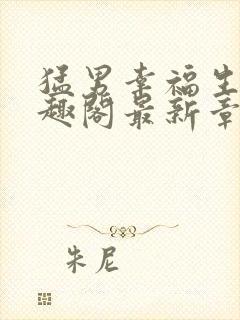 猛男幸福生
趣阁最新章
朱尼